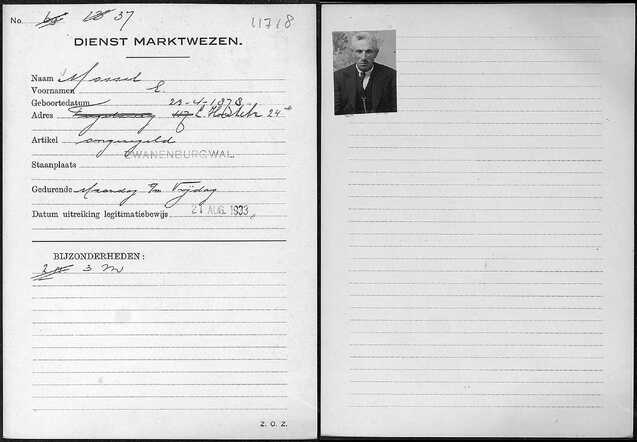 No. 37 11718
DIENST MARKTWEZEN.
Naam Mossel
Voornamen E
Geboortedatum 23-4-1873.
Adres 24
Artikel ongeregeld
ZWANENBURGWAL.
Staanplaats
Gedurende Maandag t/m Vrijdag
Datum uitreiking legitimatiebewijs 21 AUG. 1933.
BIJZONDERHEDEN:
3 M
Z. O. Z.